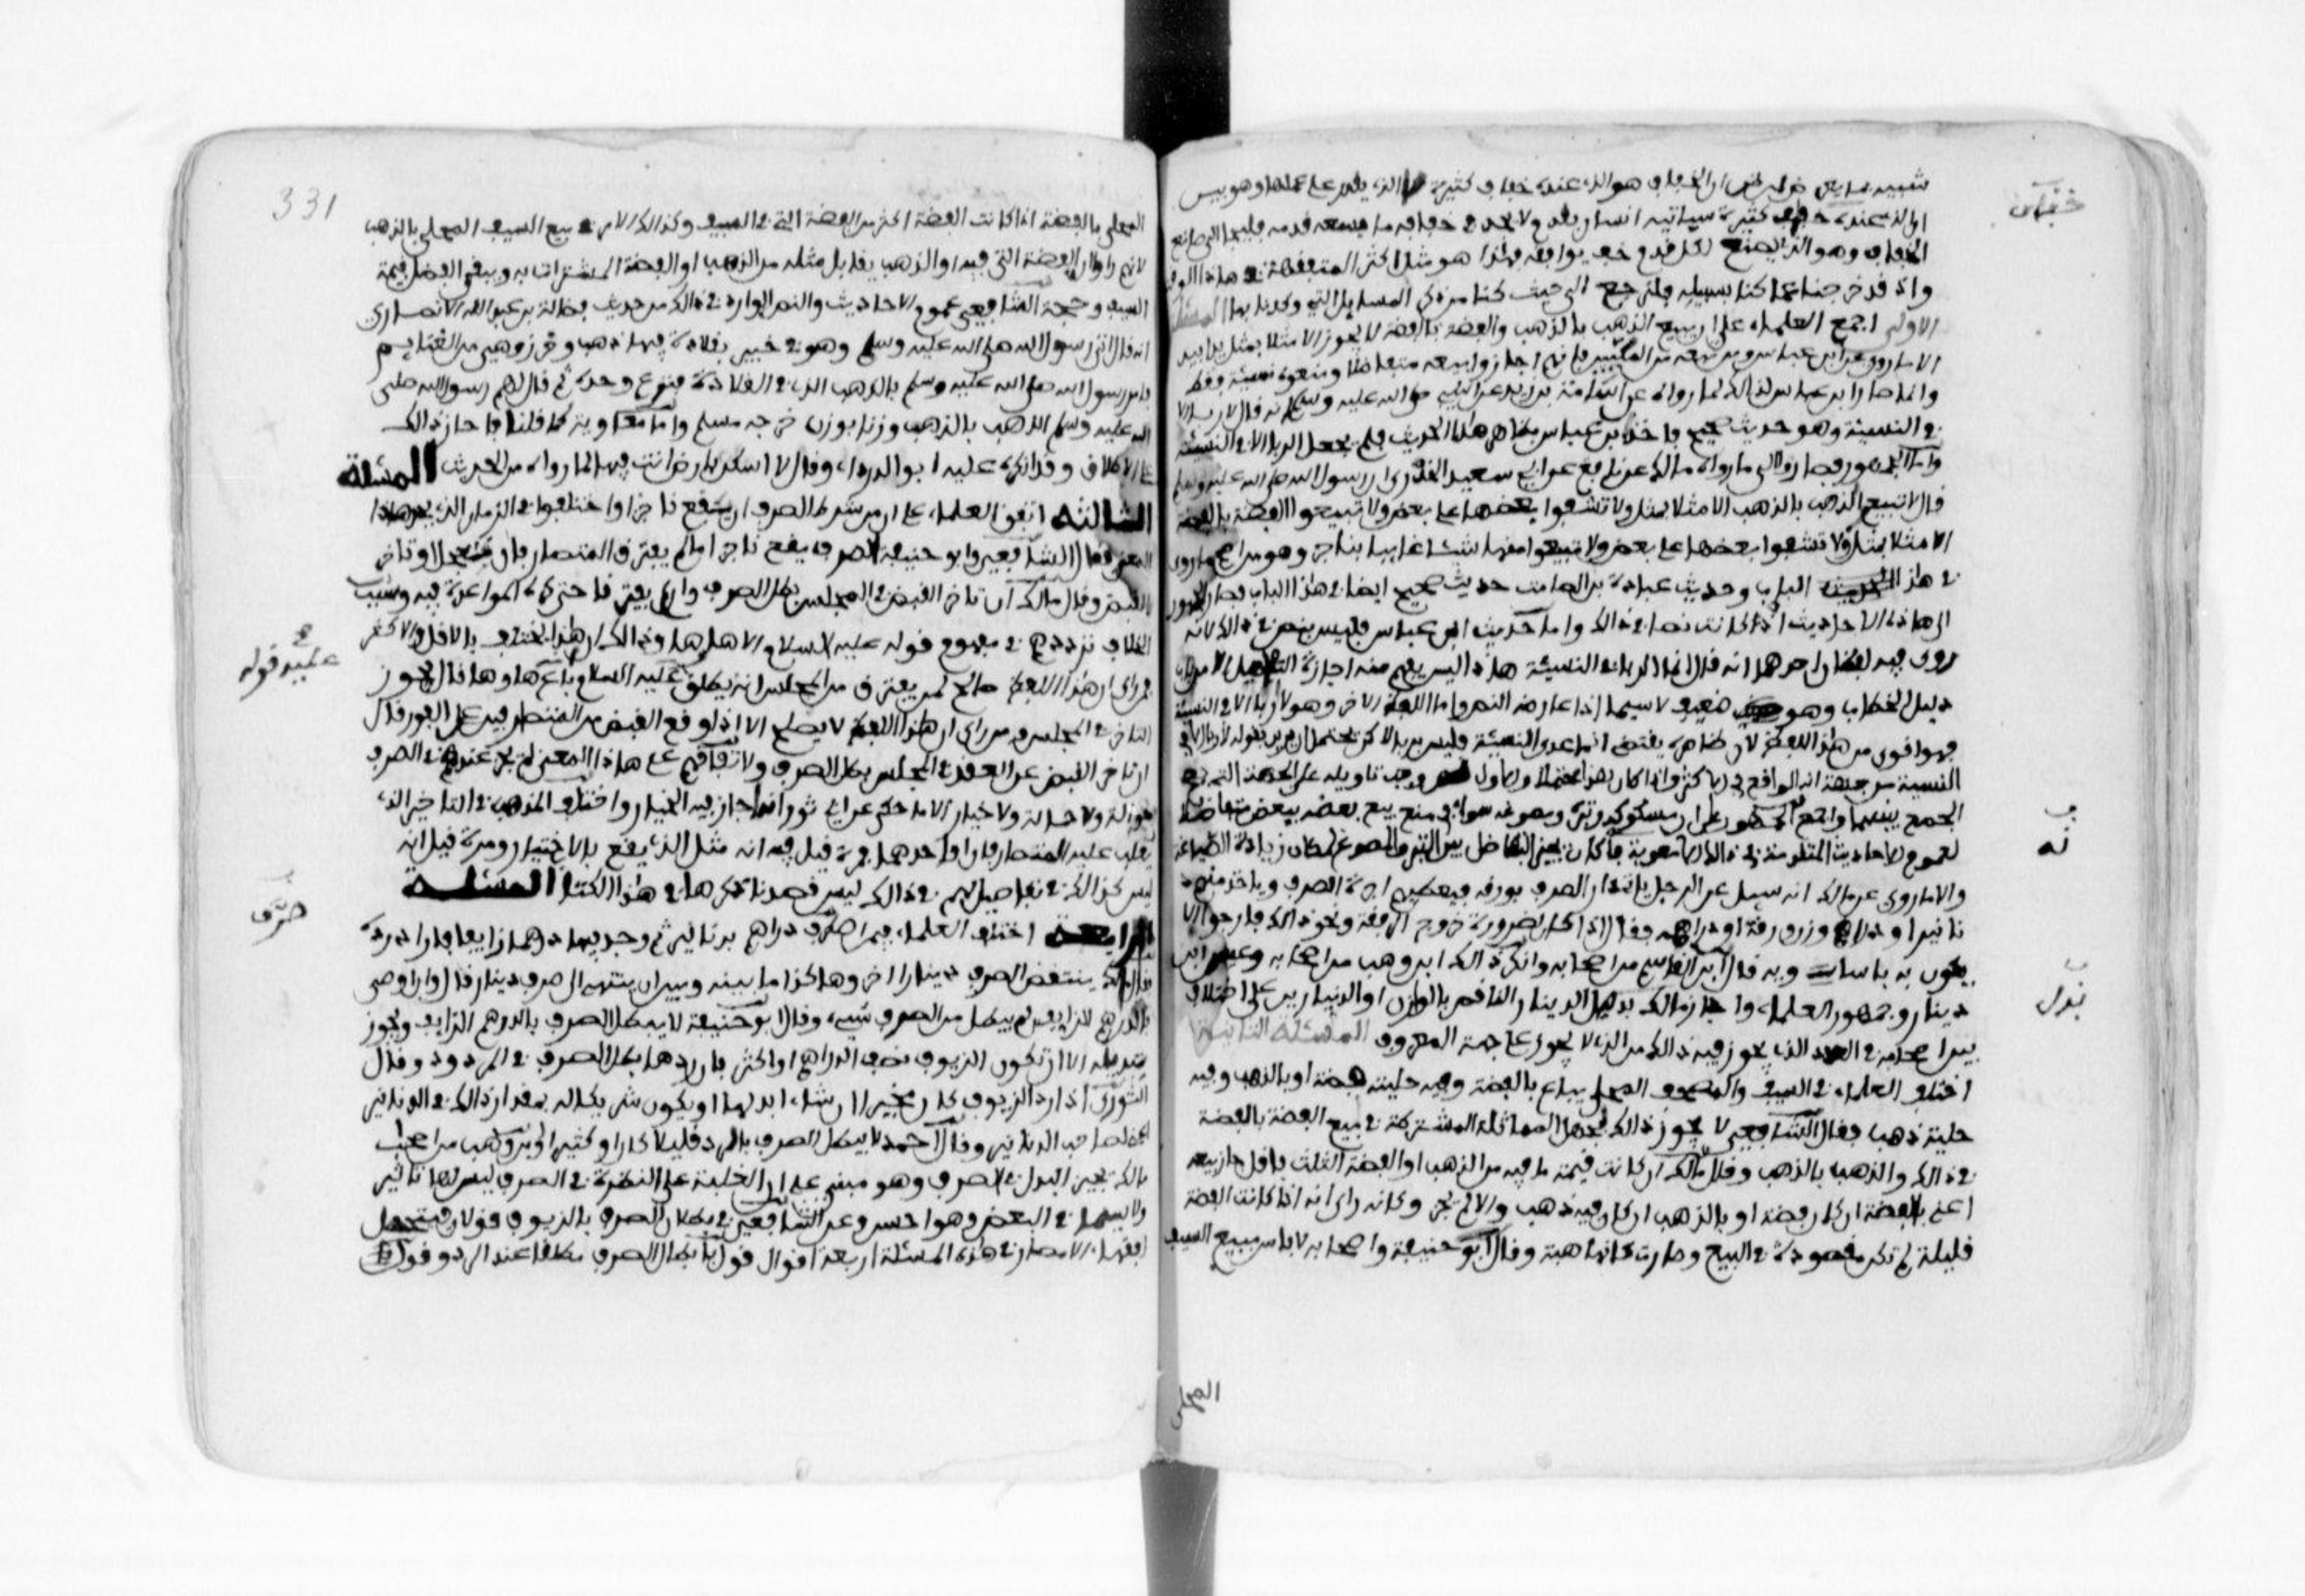 شبيه بما يعرض ظن ان الخفاف هو الذي عنده خفاف كثيرة لا الذي يقدر على عملها وهو بين
ان الذي عنده خفاف كثيرة سياتيه انسان بقدم ولا يجد في خفافه ما يصلح لقدمه فيلجا الى صانع
الخفاف وهو الذي يصنع لكل قدم خف يوافقه فهذا هو مثل اكثر المتفقهة في هاذا الوقت
واذ قد خرجنا عما كنا بسبيله فلنرجع الى حيث كنا من ذكر المسايل التي وعدنا بها المسئلة
الاولى اجمع العلماء على ان بيع الذهب بالذهب والفضة بالفضة لا يجوز الا مثلا بمثل يدا بيد
الا ما روي عن ابن عباس ومن تبعه من المكيين فانهم اجازوا بيعه متفاضلا ومنعوه نسيئة فقط
وانما صار ابن عباس لذالك لما رواه عن اسامة بن زيد عن النبي صلى الله عليه وسلم انه قال لا ربا الا
في النسيئة وهو حديث صحيح فاخذ ابن عباس بظاهر هذا الحديث فلم يجعل الربا الا في النسيئة
واما الجمهور فصاروا الى ما رواه مالك عن نافع عن ابي سعيد الخدري ان رسول الله صلى الله عليه وسلم
قال لا تبيعوا الذهب بالذهب الا مثلا بمثل ولا تشفوا بعضها على بعض ولا تبيعوا الفضة بالفضة
الا مثلا بمثل ولا تشفوا بعضها على بعض ولا تبيعوا منها شيئا غايبا بناجز وهو من اصح ما روي
في هذا الباب وحديث عبادة بن الصامت حديث صحيح ايضا في هذا الباب فصار الجمهور
الى هاذه الاحاديث اذ كانت نصا في ذالك واما حديث ابن عباس فليس بنص في ذالك لانه
روي فيه لفظان احدهما انه قال انما الربا في النسيئة هاذا ليس يفهم منه اجازة التفاضل الا من
دليل الخطاب وهو ضعيف لا سيما اذا عارضه النص واما اللفظ الاخر وهو لا ربا الا في النسيئة
فهو اقوى من هذا اللفظ لان ظاهره يقتضي ان ما عدى النسيئة فليس بربا لاكن يحتمل ان يريد بقوله لا ربا الا في
النسيئة من جهة انه الواقع في الاكثر واذا كان هذا محتملا والاول نص وجب تاويله على الجهة التي يصح
الجمع بينهما واجمع الجمهور على ان مسكوكه وتبره ومصوغه سواء في منع بيع بعضه ببعض متفاضلا
لعموم الاحاديث المتقدمة في ذالك الا معوية فانه كان يجيز التفاضل بين التبر والمصوغ لمكان زيادة الصياغة
والا ما روي عن مالك انه سيل عن الرجل ياتي دار الضرب بورقه فيعطيهم اجرة الضرب وياخذ منهم د
نانيرا ودراهم وزن ورقه او دراهمه فقال اذا كان لضرورة خروج الرفقة ونحو ذالك فارجو الا
يكون به باسا وبه قال ابن القاسم من اصحابه وانكر ذالك ابن وهب من اصحابه وعيسى ابن
دينار وجمهور العلماء واجاز مالك بدل الدينار الناقص بالوازن او الدينارين على اختلاف
بين اصحابه في العدد الذي يجوز فيه ذالك من الذي لا يجوز على جهة المعروف المسئلة الثانية
اختلف العلماء في السيف والمصحف المحلى يباع بالفضة وفيه حلية فضة او بالذهب وفيه
حلية ذهب فقال الشافعي لا يجوز ذالك لجهل المماثلة المشترطة في بيع الفضة بالفضة
في ذالك والذهب بالذهب وقال مالك ان كانت قيمة ما فيه من الذهب او الفضة الثلث فاقل جاز بيعه
اعني بالفضة ان كان فضة او بالذهب ان كان فيه ذهب والا لم يجز وكانه راى انه اذا كانت الفضة
قليلة لم تكن مقصودة في البيع وصارت كانها هبة وقال ابو حنيفة واصحابه لا باس ببيع السيف
المحلى
خفاف
ف
نه
بدل
331
المحلى بالفضة اذا كانت الفضة اكثر من الفضة التي في السيف وكذالك الامر في بيع السيف المحلى بالذهب
لانهم راوا ان الفضة التي فيه او الذهب يقابل مثله من الذهب او الفضة المشترات به ويبقى الفضل قيمة
السيف وحجة الشافعي عموم الاحاديث والنص الوارد في ذالك من حديث فضالة بن عبد الله الانصاري
انه قال اتي رسول الله صلى الله عليه وسلم وهو في خيبر بقلادة فيها ذهب وخرز وهي من الغنايم
فامر رسول الله صلى الله عليه وسلم بالذهب الذي في القلادة فنزع وحده ثم قال لهم رسول الله صلى
الله عليه وسلم الذهب بالذهب وزنا بوزن خرجه مسلم واما معاوية كما قلنا فاجاز ذالك
على الاطلاق وقد انكره عليه ابو الدرداء وقال لا اسكن بارض انت فيها لما رواه من الحديث المسئلة
الثالثة اتفق العلماء على ان من شرط الصرف ان يقع ناجزا واختلفوا في الزمان الذي يحد هاذا
المعنى فقال الشافعي وابو حنيفة الصرف يقع ناجزا ما لم يفترق المتصارفان تعجل او تاخر
القبض وقال مالك ان تاخر القبض في المجلس بطل الصرف وان لم يفترقا حتى كره المواعدة فيه وسبب
الخلاف ترددهم في مفهوم قوله عليه السلام الا ها وها وذالك ان هذا يختلف بالاقل والاكثر
فمن راى ان هذا اللفظ صالح لمن لم يفترق من المجلس انه يطلق عليه انه باع ها وها قال يجوز
التاخر في المجلس ومن راى ان هذا اللفظ لا يصلح الا اذا وقع القبض من المتصارفين على الفور قال
ان تاخر القبض عن العقد في المجلس بطل الصرف ولاتفاقهم على هاذا المعنى لم يجز عندهم في الصرف
حوالة ولا حمالة ولا خيار الا ما حكي عن ابي ثور انه اجاز فيه الخيار واختلف المذهب في التاخير الذي
يغلب عليه المتصارفان او احدهما فمرة قيل فيه انه مثل الذي يقع بالاختيار ومرة قيل انه
ليس كذالك في تفاصيل لهم في ذالك ليس قصدنا ذكرها في هذا الكتاب المسئلة
الرابعة اختلف العلماء فيمن اصطرف دراهم بدنانير ثم وجد فيها درهما زايفا فاراد رده
فقال مالك ينتقض الصرف دينارا اخر وهاكذا ما بينه وبين ان ينتهي الى صرف دينار قال وان اوصى
بالدرهم الزايف لم يبطل من الصرف شيء وقال ابو حنيفة لا يبطل الصرف بالدرهم الزايف ويجوز
تبديله الا ان تكون الزيوف نصف الدراهم او اكثر فان ردها بطل الصرف في المردود وقال
الثوري اذا رد الزيوف كان مخيرا ان شاء ابدلها او يكون شريكا له بمقدار ذالك في الدنانير
لصاحب الدنانير وقال احمد لا يبطل الصرف بالرد قليلا كان او كثيرا وابن وهب من اصحاب
مالك يجيز البدل في الصرف وهو مبني على ان الغلبة على النظرة في الصرف ليس لها تاثير
ولا سيما في البعض وهو احسن وعن الشافعي في بطلان الصرف بالزيوف قولان فيتحصل
لفقهاء الامصار في هذه المسئلة اربعة اقوال قول بابطال الصرف مطلقا عند الرد وقول
عليه قوله
صرف